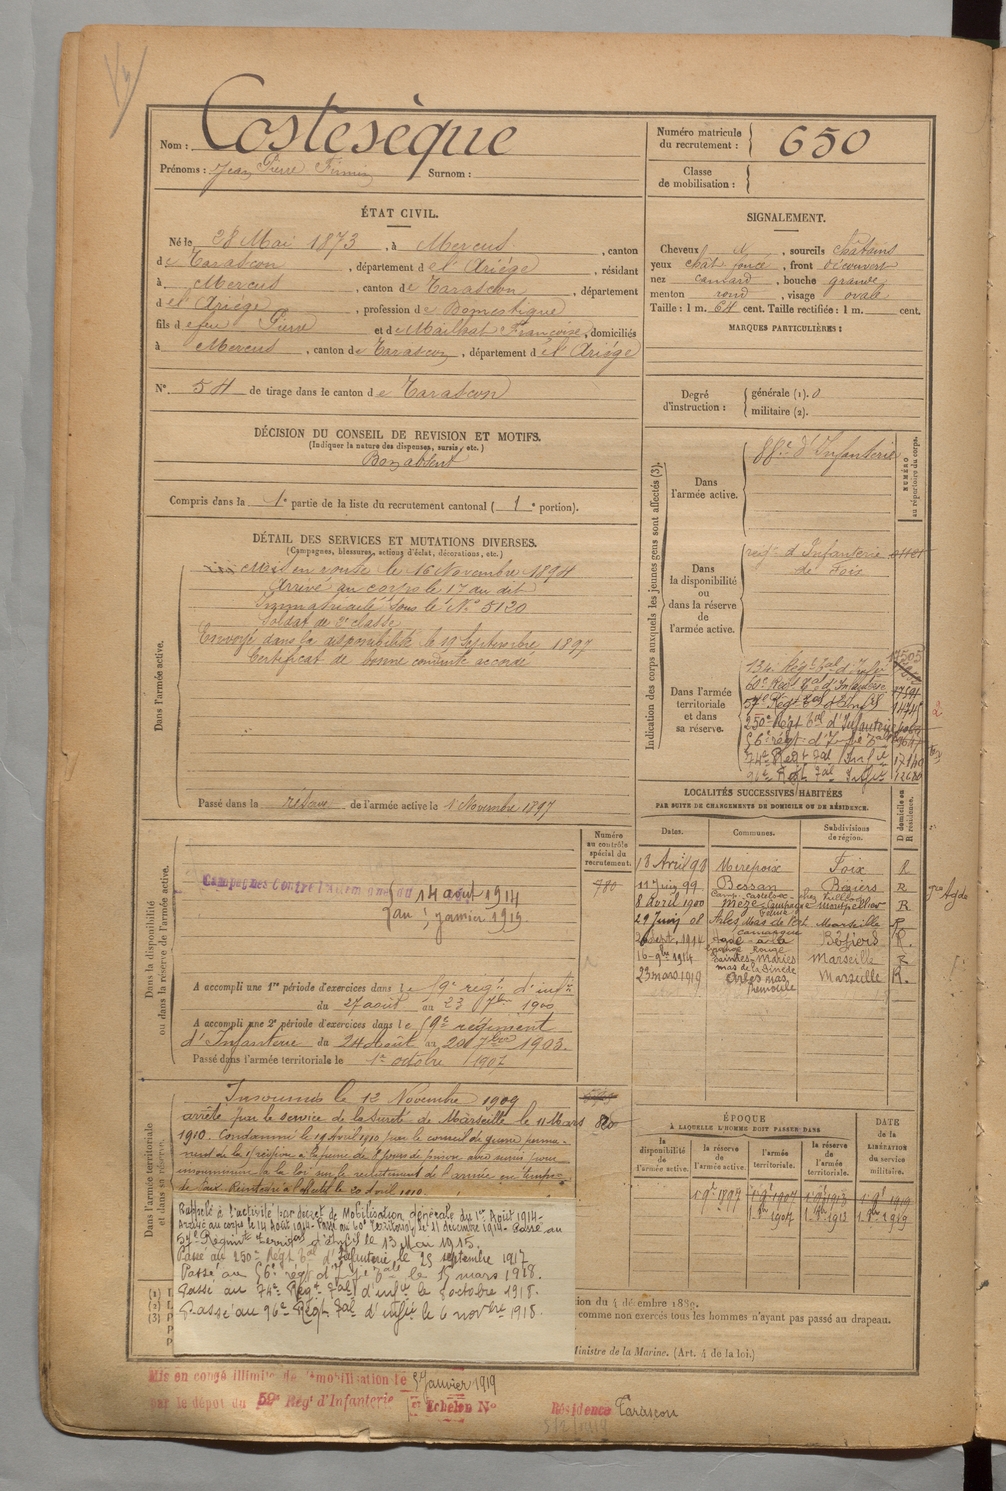 Nom : Costesèque
Prénoms : Jean Pierre Firmin Surnom :
Numéro matricule du recrutement : 650
Classe de mobilisation :
ÉTAT CIVIL.
Né le 28 Mai 1873, à Mercus, canton
de Tarascon, département de l'Ariège, résidant
à Mercus, canton de Tarascon, département
de l'Ariège, profession de Domestique
fils de feu Pierre et de Mailhat Françoise, domiciliés
à Mercus, canton de Tarascon, département de l'Ariège
N° 54 de tirage dans le canton de Tarascon
SIGNALEMENT.
Cheveux N, sourcils châtains
yeux chât foncé, front découvert
nez camard, bouche grande
menton rond, visage ovale
Taille : 1 m. 64 cent. Taille rectifiée : 1 m. cent.
MARQUES PARTICULIÈRES :
Degré d'instruction : générale (1). 0
militaire (2).
DÉCISION DU CONSEIL DE REVISION ET MOTIFS.
(Indiquer la nature des dispenses, sursis, etc.)
Bon absent
Compris dans la 1e partie de la liste du recrutement cantonal (1e portion).
DÉTAIL DES SERVICES ET MUTATIONS DIVERSES.
(Campagnes, blessures, actions d'éclat, décorations, etc.)
Dans l'armée active.
Mis en route le 16 Novembre 1894
Arrivé au corps le 17 au dit
Immatriculé sous le N° 5120
Soldat de 2e classe
Envoyé dans la disponibilité le 19 Septembre 1897
Certificat de bonne conduite accordé
Passé dans la réserve de l'armée active le 1 Novembre 1897
Indication des corps auxquels les jeunes gens sont affectés (3).
NUMÉRO au répertoire du corps.
Dans l'armée active.
88e d'Infanterie
Dans la disponibilité ou dans la réserve de l'armée active.
régt d'Infanterie
de Foix
Dans l'armée territoriale et dans sa réserve.
134e Régt tal d'Infie
60e Régt tal d'Infanterie
57e Régt tal d'Infie
250e Régt tal d'Infanterie
56e régt d'Infie tale
74e Régt tal Infie
96e Régt tal Infie
LOCALITÉS SUCCESSIVES HABITÉES
PAR SUITE DE CHANGEMENTS DE DOMICILE OU DE RÉSIDENCE.
Dates. Communes. Subdivisions de région. D domicile ou R résidence.
18 Avril 98 Mirepoix Foix R
11 Juin 99 Bessan Beziers R
8 Avril 1900 Mèze Montpellier R
29 Juin 08 Arles Mas de Vert Camargue Marseille R
1914 Béziers R.
16 9bre 1914 Saintes Maries Marseille R
23 mars 1919 Arles mas Marseille R.
Dans la disponibilité ou dans la réserve de l'armée active.
Numéro au contrôle spécial du recrutement.
780
Campagnes Contre l'Allemagne du 14 août 1914
au 5 janvier 1919
A accompli une 1re période d'exercices dans le 19e régt d'infie
du 27 août au 23 7bre 1900
A accompli une 2e période d'exercices dans le 9e régiment
d'Infanterie du 24 Août au 20 7bre 1903.
Passé dans l'armée territoriale le 1er octobre 1907
Dans l'armée territoriale et dans sa réserve.
Insoumis le 12 Novembre 1909
arrêté par le service de la sureté de Marseille le 11 Mars
1910. Condamné le 19 Avril 1910 par le conseil de guerre perma-
nent de la 15e région à la peine de 8 jours de prison avec sursis pour
insoumission à la loi sur le recrutement de l'armée en temps
de paix. Réintégré à l'effectif le 20 Avril 1910.
Rappelé à l'activité par décret de Mobilisation générale du 1er Août 1914.
Arrivé au corps le 14 Août 1914. Passé au 60e Territorial le 21 décembre 1914. Passé au
57e Régiment territorial d'infie le 13 Mai 1915.
Passé au 250e Régt tal d'Infanterie, le 25 septembre 1917
Passé au 56e régt d'Infie tale le 15 mars 1918.
Passé au 74e Régt tal d'infie le 5 octobre 1918.
Passé au 96e Régt tal d'infie le 6 novbre 1918.
ÉPOQUE
À LAQUELLE L'HOMME DOIT PASSER DANS
la disponibilité de l'armée active. la réserve de l'armée active. l'armée territoriale. la réserve de l'armée territoriale.
DATE de la LIBÉRATION du service militaire.
1 9e 1897 1 9e 1907 1 9e 1913 1 9e 1919
tion du 4 décembre 1889.
comme non exercés tous les hommes n'ayant pas passé au drapeau.
Ministre de la Marine. (Art. 4 de la loi.)
Mis en congé illimité de démobilisation le 5 Janvier 1919
par le dépôt du 59e Régt d'Infanterie Echelon N°
Résidence Tarascon